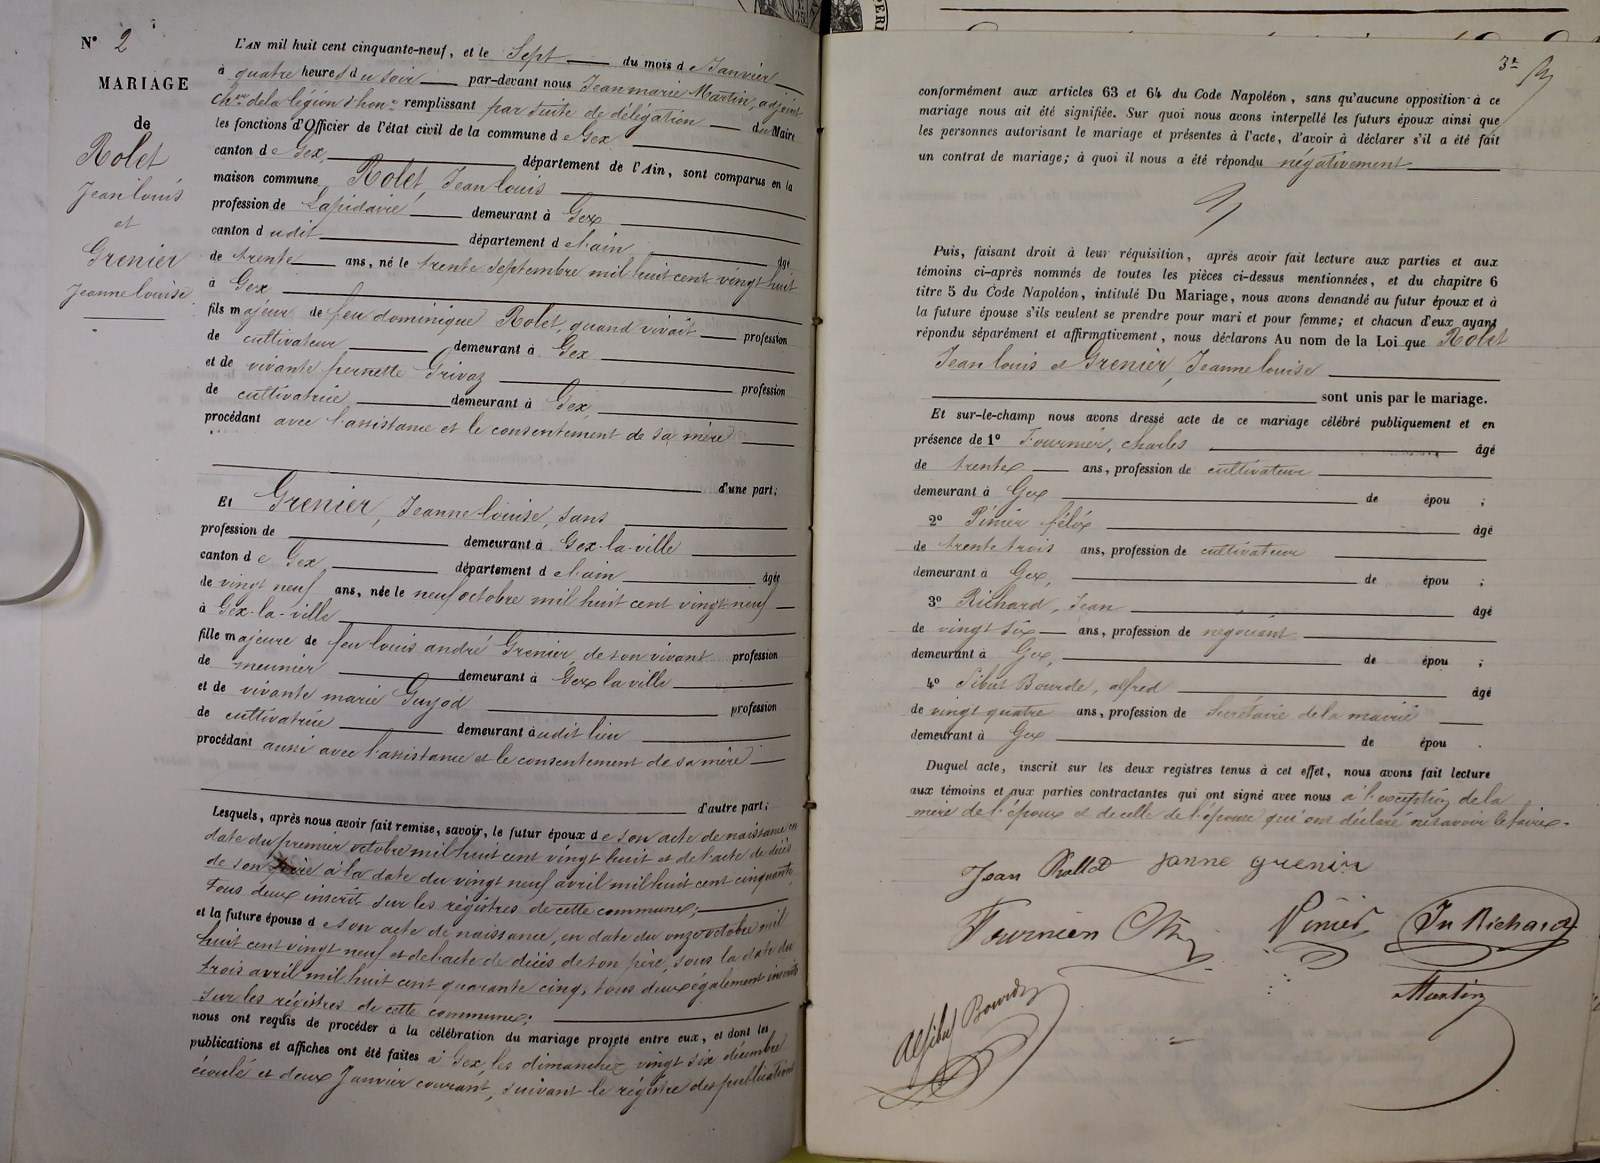 N° 2
MARIAGE
de
Rolet
Jean louis
et
Grenier
Jeanne louise
L'AN mil huit cent cinquante-neuf, et le Sept du mois de Janvier
à quatre heures du soir par-devant nous Jean marie Martin, adjoint
chev de la légion d'hon r remplissant par suite de délégation du Maire
les fonctions d'Officier de l'état civil de la commune de Gex
canton de Gex département de l'Ain, sont comparus en la
maison commune Rolet, Jean louis
profession de Lapidaire demeurant à Gex
canton dudit département de l'ain âgé
de trente ans, né le trente septembre mil huit cent vingt huit
à Gex
fils majeur de feu dominique Rolet, quand vivait profession
de cultivateur demeurant à Gex
et de vivante pernette Grivaz profession
de cultivatrice demeurant à Gex,
procédant avec l'assistance et le consentement de sa mère
d'une part;
Et Grenier, Jeanne louise, sans
profession de demeurant à Gex-la-ville
canton de Gex, département de l'ain âgée
de vingt neuf ans, née le neuf octobre mil huit cent vingt neuf
à Gex-la-ville
fille majeure de feu louis andré Grenier, de son vivant profession
de meunier demeurant à Gex la ville
et de vivante marie Guyod profession
de cultivatrice demeurant audit lieu
procédant aussi avec l'assistance et le consentement de sa mère
d'autre part;
Lesquels, après nous avoir fait remise, savoir, le futur époux de son acte de naissance en
date du premier octobre mil huit cent vingt huit et de l'acte de décès
de son père à la date du vingt neuf avril mil huit cent cinquante,
tous deux inscrits sur les régistres de cette commune;
et la future épouse de son acte de naissance, en date du onze octobre mil
huit cent vingt neuf et de l'acte de décès de son père, sous la date du
trois avril mil huit cent quarante cinq, tous deux également inscrits
sur les régistres de cette commune;
nous ont requis de procéder à la célébration du mariage projeté entre eux, et dont les
publications et affiches ont été faites à Gex, les dimanches vingt six décembre
écoulé et deux Janvier courant, suivant le régistre des publications
3e
conformément aux articles 63 et 64 du Code Napoléon, sans qu'aucune opposition à ce
mariage nous ait été signifiée. Sur quoi nous avons interpellé les futurs époux ainsi que
les personnes autorisant le mariage et présentes à l'acte, d'avoir à déclarer s'il a été fait
un contrat de mariage; à quoi il nous a été répondu négativement
Puis, faisant droit à leur réquisition, après avoir fait lecture aux parties et aux
témoins ci-après nommés de toutes les pièces ci-dessus mentionnées, et du chapitre 6
titre 5 du Code Napoléon, intitulé Du Mariage, nous avons demandé au futur époux et à
la future épouse s'ils veulent se prendre pour mari et pour femme; et chacun d'eux ayant
répondu séparément et affirmativement, nous déclarons Au nom de la Loi que Rolet
Jean louis et Grenier, Jeanne louise
sont unis par le mariage.
Et sur-le-champ nous avons dressé acte de ce mariage célébré publiquement et en
présence de 1° Fournier, charles âgé
de trente ans, profession de cultivateur
demeurant à Gex de épou ;
2° Pinier félix âgé
de trente trois ans, profession de cultivateur
demeurant à Gex, de épou ;
3° Richard, Jean âgé
de vingt six ans, profession de négociant
demeurant à Gex, de épou ;
4° Sibut Bourde, alfred âgé
de vingt quatre ans, profession de Secrétaire de la mairie
demeurant à Gex de épou .
Duquel acte, inscrit sur les deux registres tenus à cet effet, nous avons fait lecture
aux témoins et aux parties contractantes qui ont signé avec nous à l'exception de la
mère de l'époux et de celle de l'épouse qui ont déclaré ne savoir le faire.
Jean Rallet janne grenier
Fournier Ch Pinier Jn Richard
Martin
A Sibut Bourde